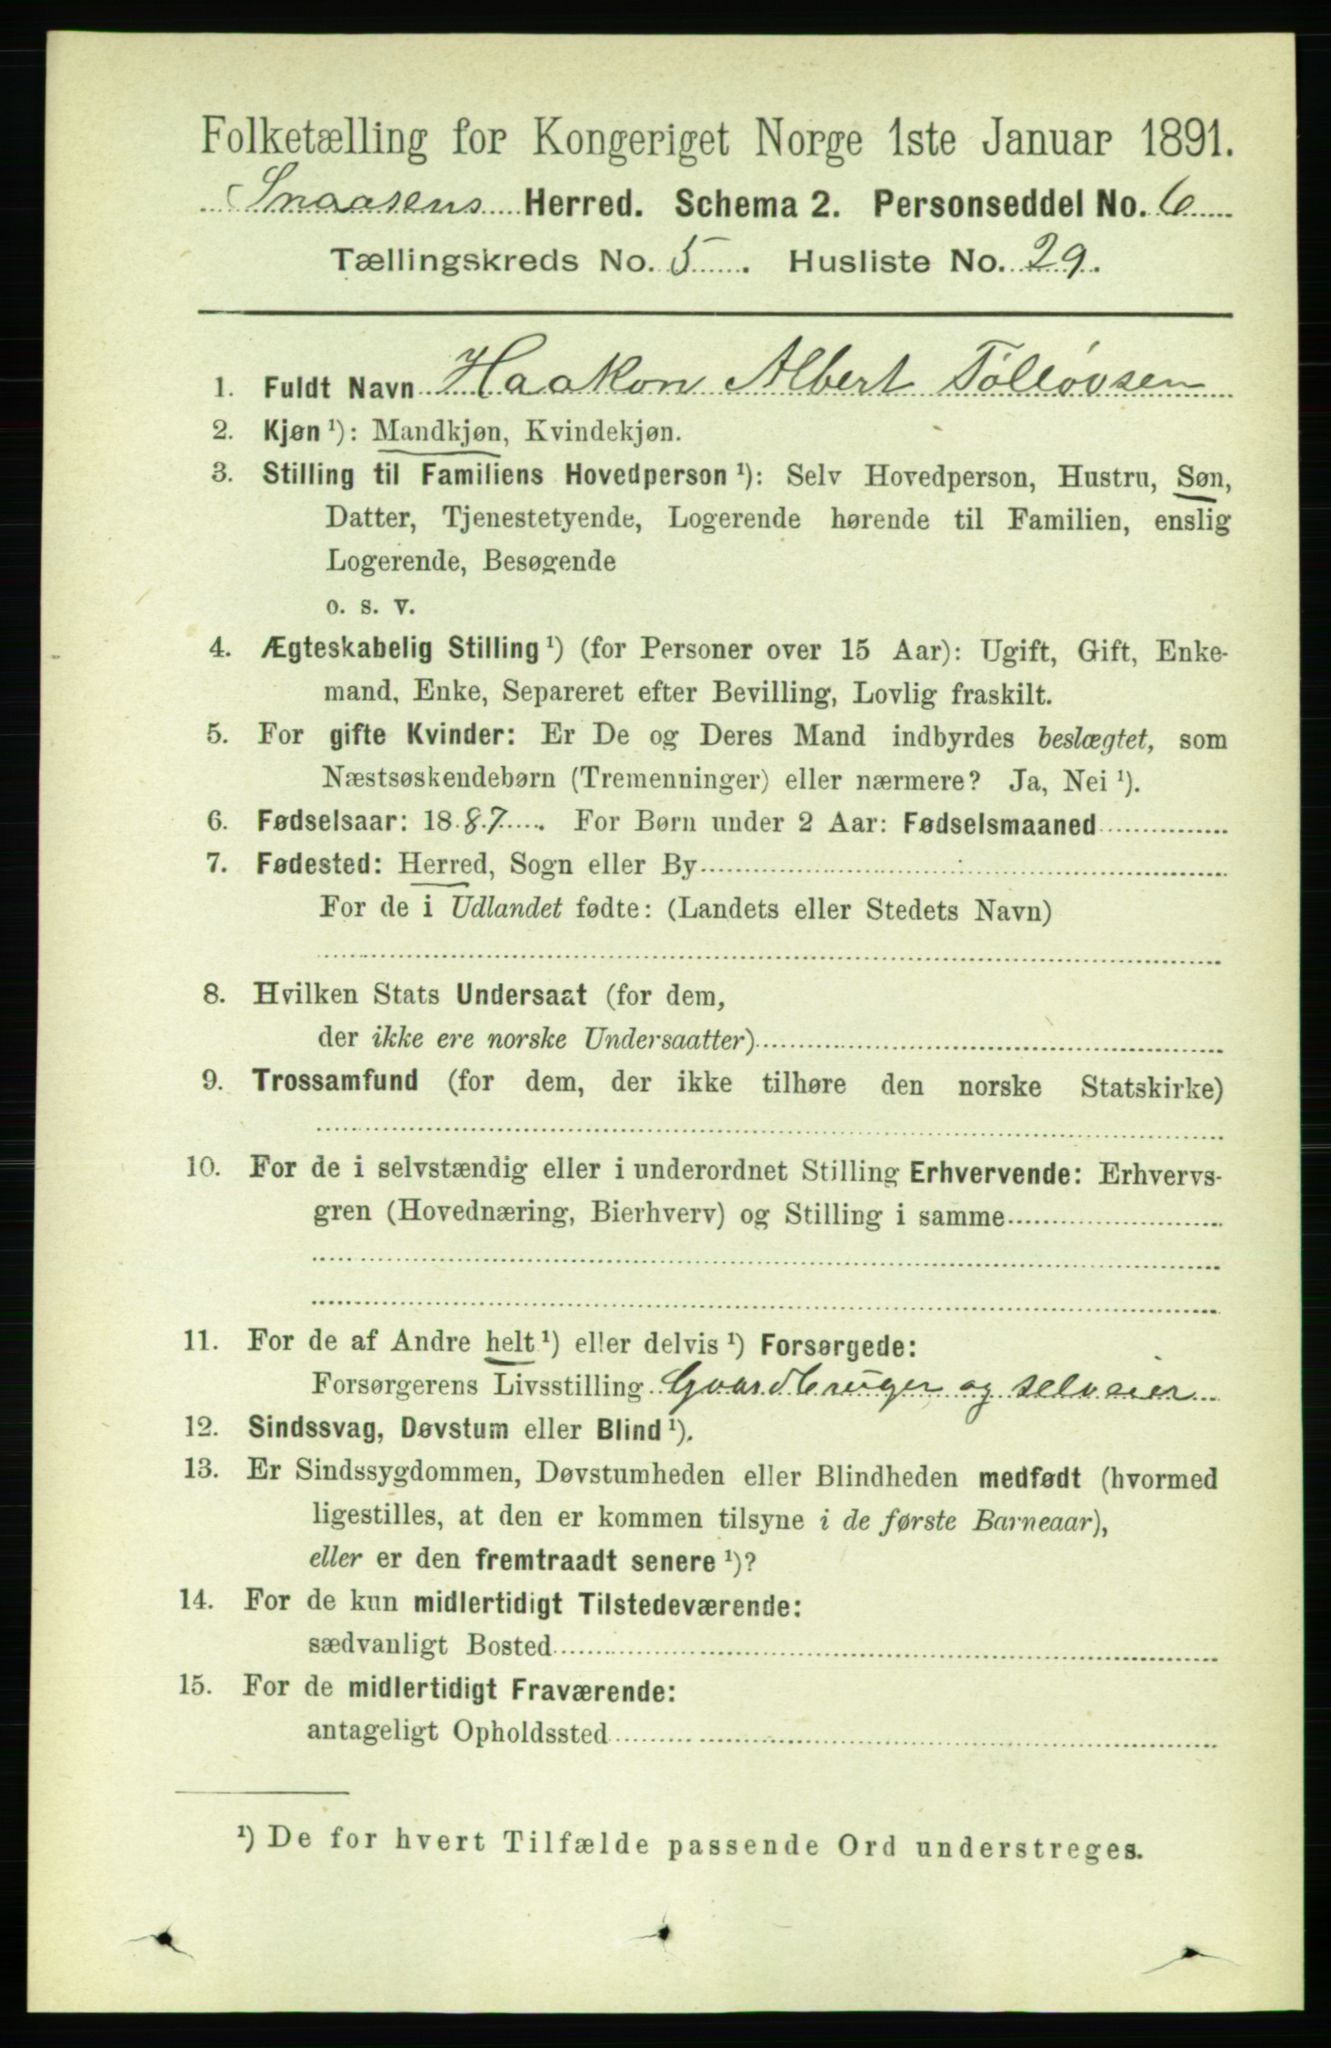 Folketælling for Kongeriget Norge 1ste Januar 1891.
Snaasens Herred. Schema 2. Personseddel No. 6
Tællingskreds No. 5. Husliste No. 29.
1. Fuldt Navn Haakon Albert Tølløvsen
2. Kjøn ¹): Mandkjøn, Kvindekjøn.
3. Stilling til Familiens Hovedperson ¹): Selv Hovedperson, Hustru, Søn,
Datter, Tjenestetyende, Logerende hørende til Familien, enslig
Logerende, Besøgende
o. s. v.
4. Ægteskabelig Stilling ¹) (for Personer over 15 Aar): Ugift, Gift, Enke-
mand, Enke, Separeret efter Bevilling, Lovlig fraskilt.
5. For gifte Kvinder: Er De og Deres Mand indbyrdes beslægtet, som
Næstsøskendebørn (Tremenninger) eller nærmere? Ja, Nei ¹).
6. Fødselsaar: 1887. For Børn under 2 Aar: Fødselsmaaned
7. Fødested: Herred, Sogn eller By
For de i Udlandet fødte: (Landets eller Stedets Navn)
8. Hvilken Stats Undersaat (for dem,
der ikke ere norske Undersaatter)
9. Trossamfund (for dem, der ikke tilhøre den norske Statskirke)
10. For de i selvstændig eller i underordnet Stilling Erhvervende: Erhvervs-
gren (Hovednæring, Bierhverv) og Stilling i samme
11. For de af Andre helt ¹) eller delvis ¹) Forsørgede:
Forsørgerens Livsstilling Gaardbruger og selveier
12. Sindssvag, Døvstum eller Blind ¹).
13. Er Sindssygdommen, Døvstumheden eller Blindheden medfødt (hvormed
ligestilles, at den er kommen tilsyne i de første Barneaar),
eller er den fremtraadt senere ¹)?
14. For de kun midlertidigt Tilstedeværende:
sædvanligt Bosted
15. For de midlertidigt Fraværende:
antageligt Opholdssted
¹) De for hvert Tilfælde passende Ord understreges.